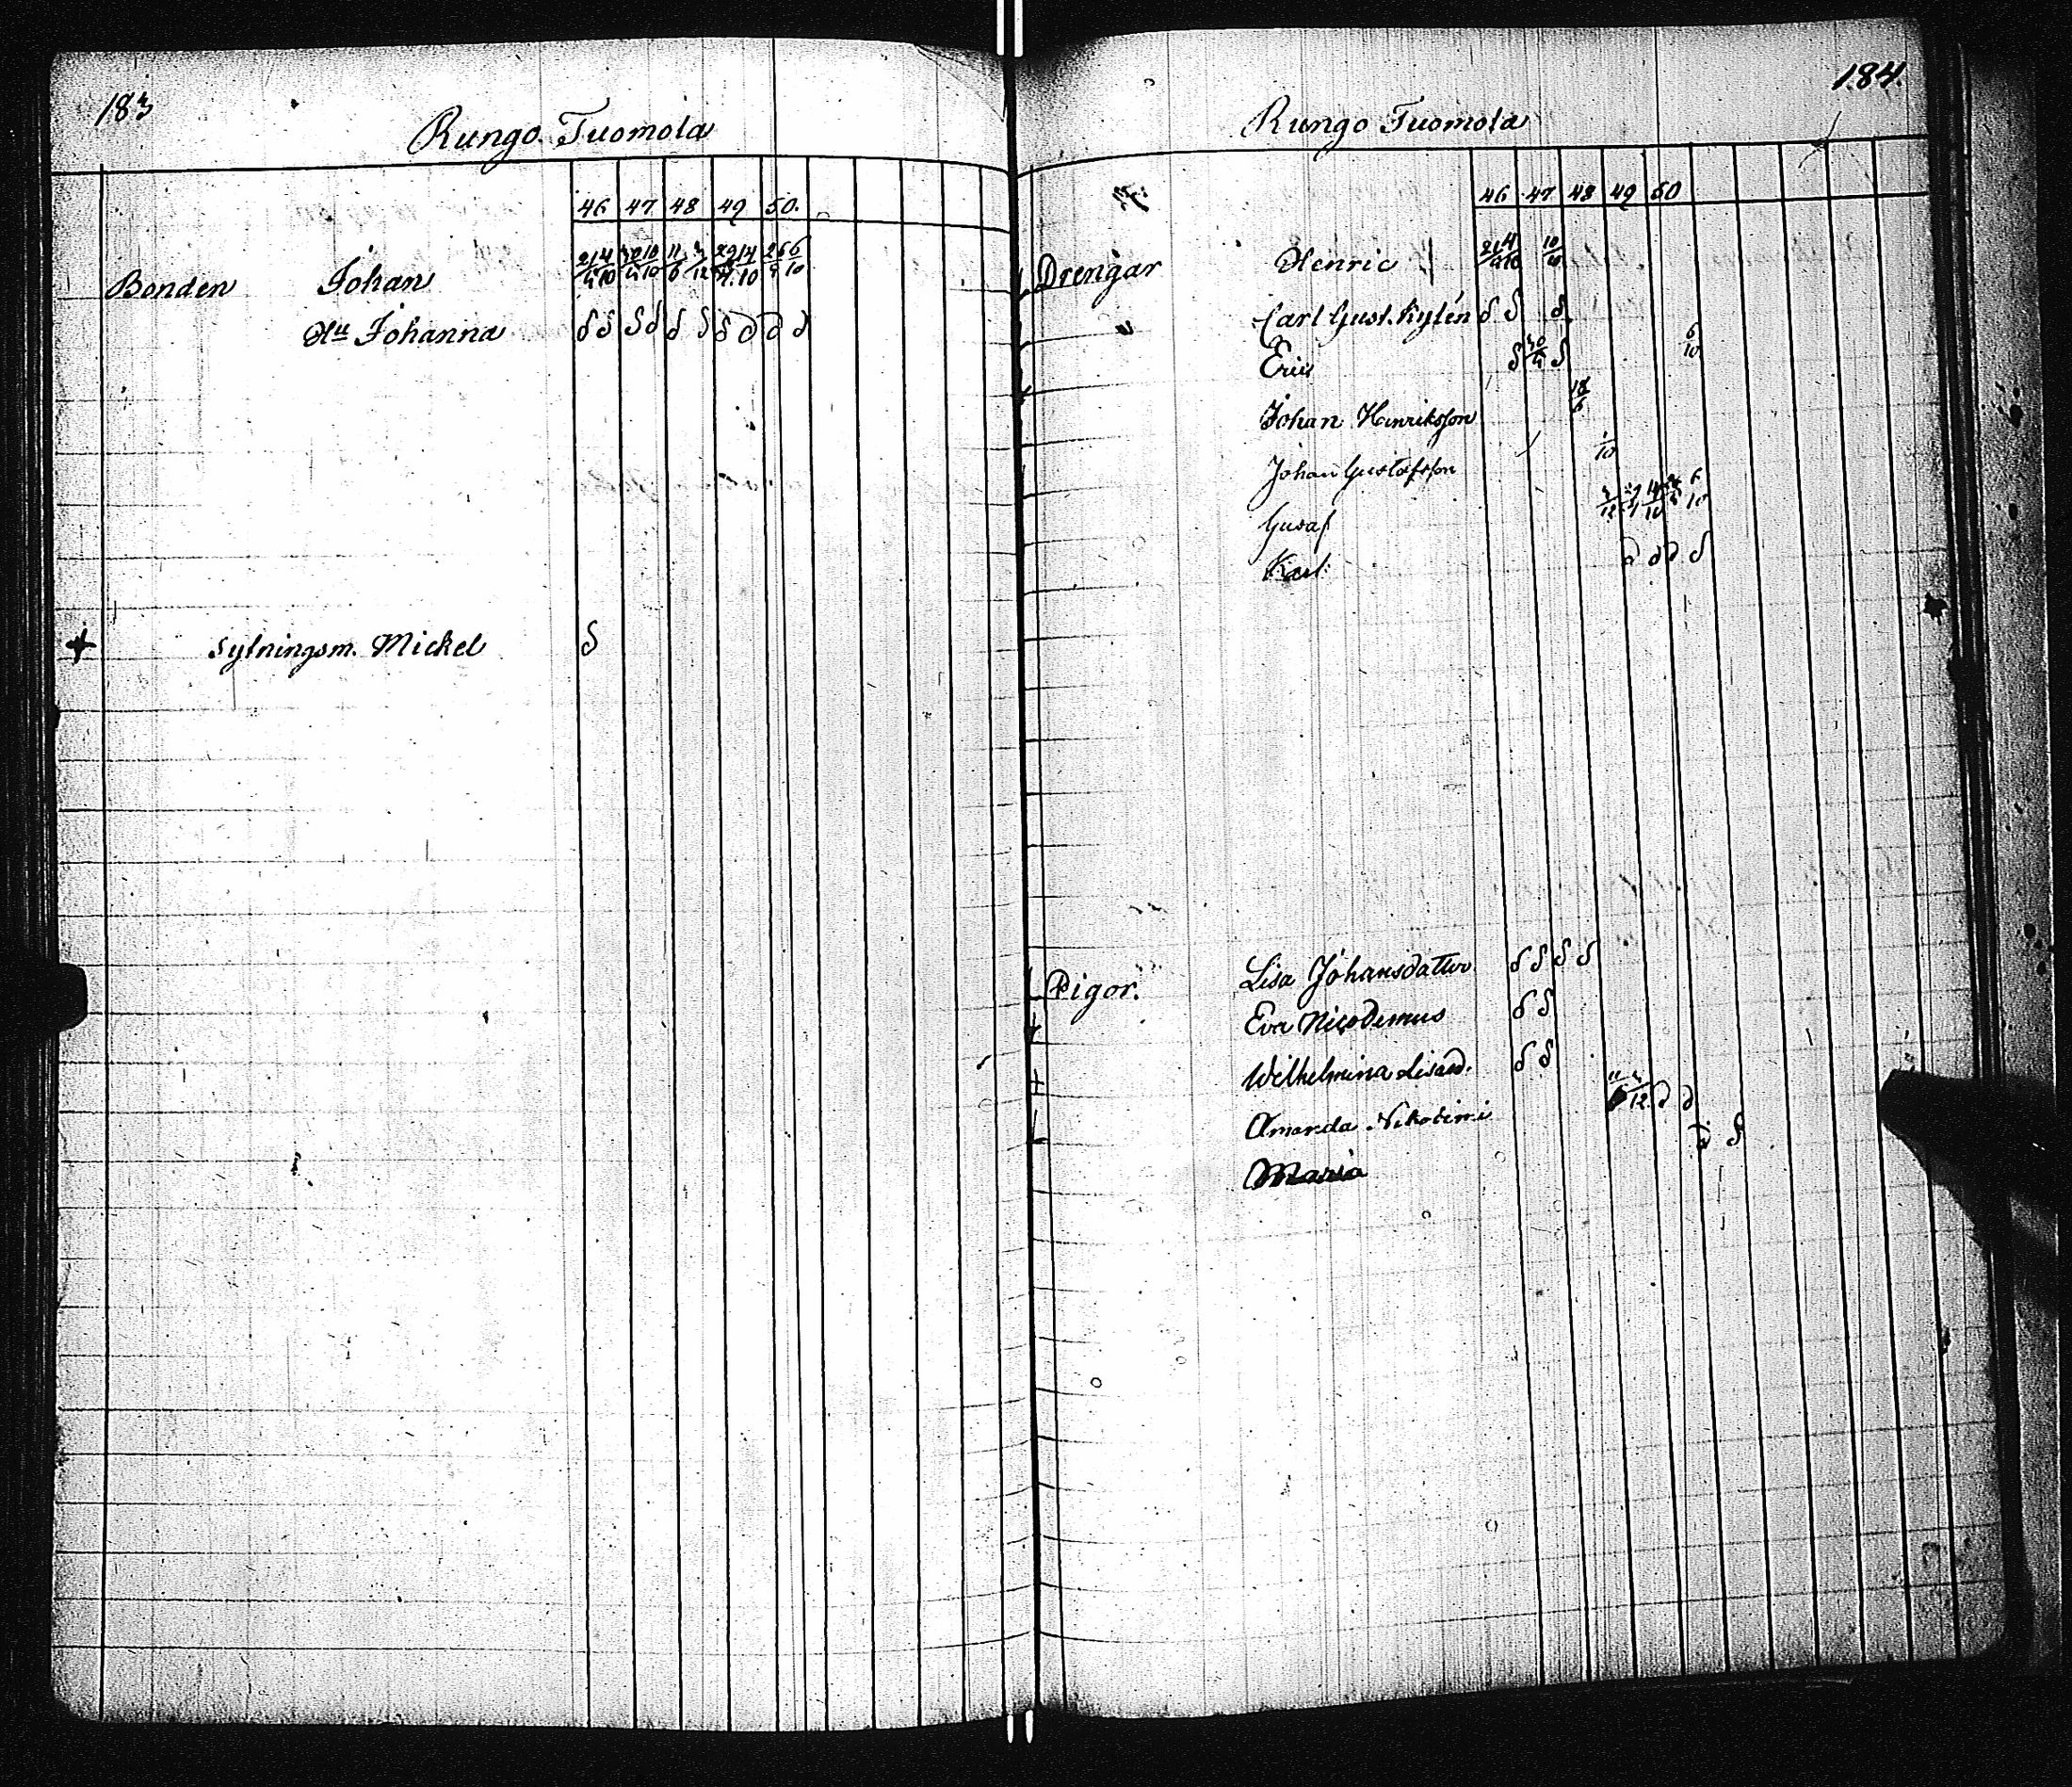 183
Rungo Tuomola
46 47 48 49 50.
Bonden Johan 21/4 4/10 30/4 10/10 11/6 3/12 29/4 14/10 26/5 6/10
Hu Johanna δ δ δ δ δ δ δ ∂ ∂ ∂
Sytningsm. Mickel δ
184.
Rungo Tuomola
46 47 48 49 50
Drengar Henric 21/4 4/10 10/10
Carl Gust. Rylén δ δ δ
Eric δ 30/4 δ 6/10
Johan Henriksson 18/6
Johan Gustafsson 1/10
Gustaf 3/12 14/10 6/10
Karl ∂ ∂ ∂ δ
Pigor. Lisa Johansdatter δ δ δ δ
Eva Nicodemus δ δ
Wilhelmina Lisasd. δ δ
Amanda Nikodemi 11/6 3/12 ∂ ∂
Maria δ